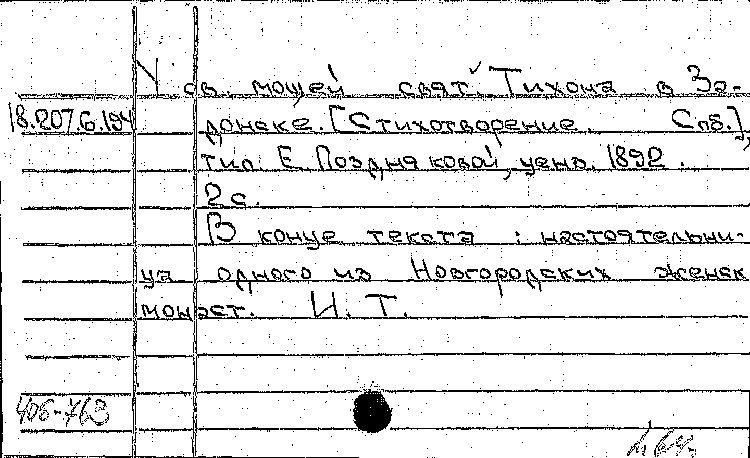 У св. мощей свят. Тихона в За-
18.207.6.194 донске. [Стихотворение. Спб.],
тип. Е. Поздняковой, ценз. 1892.
2 с.
В конце текста: настоятельни-
ца одного из Новгородских женск
монаст. И. Т.
406-763